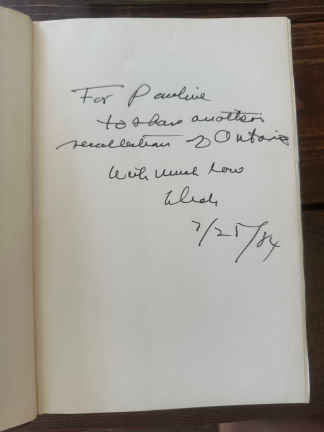 For Pauline
to share another
recollection of Ontario
With much love
7/25/84